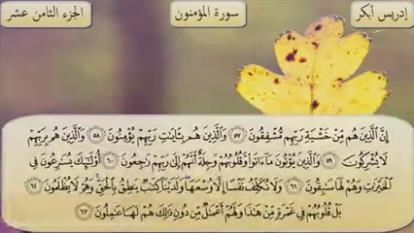 إدريس أبكر
سورة المؤمنون
الجزء الثامن عشر
إِنَّ ٱلَّذِينَ هُم مِّنۡ خَشۡيَةِ رَبِّهِم مُّشۡفِقُونَ ٥٧ وَٱلَّذِينَ هُم بِـَٔايَٰتِ رَبِّهِمۡ يُؤۡمِنُونَ ٥٨ وَٱلَّذِينَ هُم بِرَبِّهِمۡ
لَا يُشۡرِكُونَ ٥٩ وَٱلَّذِينَ يُؤۡتُونَ مَآ ءَاتَواْ وَّقُلُوبُهُمۡ وَجِلَةٌ أَنَّهُمۡ إِلَىٰ رَبِّهِمۡ رَٰجِعُونَ ٦٠ أُوْلَٰٓئِكَ يُسَٰرِعُونَ فِي
ٱلۡخَيۡرَٰتِ وَهُمۡ لَهَا سَٰبِقُونَ ٦١ وَلَا نُكَلِّفُ نَفۡسًا إِلَّا وُسۡعَهَاۚ وَلَدَيۡنَا كِتَٰبٞ يَنطِقُ بِٱلۡحَقِّ وَهُمۡ لَا يُظۡلَمُونَ ٦٢
بَلۡ قُلُوبُهُمۡ فِي غَمۡرَةٖ مِّنۡ هَٰذَا وَلَهُمۡ أَعۡمَٰلٞ مِّن دُونِ ذَٰلِكَ هُمۡ لَهَا عَٰمِلُونَ ٦٣